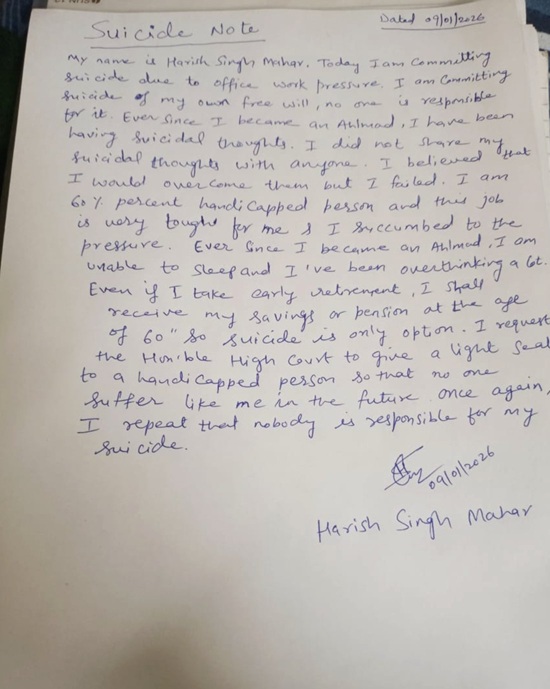 Suicide Note
Dated 09/01/2026
My name is Harish Singh Mahar. Today I am Committing
Suicide due to office work pressure. I am Committing
Suicide of my own free will, no one is responsible
for it. Ever Since I became an Ahlmad, I have been
having suicidal thoughts. I did not share my
Suicidal thoughts with anyone. I believed that
I would overcome them but I failed. I am
60% percent handicapped person and this job
is very tought for me & I Succumbed to the
pressure. Ever Since I became an Ahlmad, I am
unable to Sleep and I've been overthinking a lot.
Even if I take early retirement, I shall
receive my savings or pension at the age
of 60" So Suicide is only option. I request
the Hon'ble High Court to give a light Seat
to a handicapped person so that no one
Suffer like me in the future once again,
I repeat that nobody is responsible for my
Suicide.
09/01/2026
Harish Singh Mahar